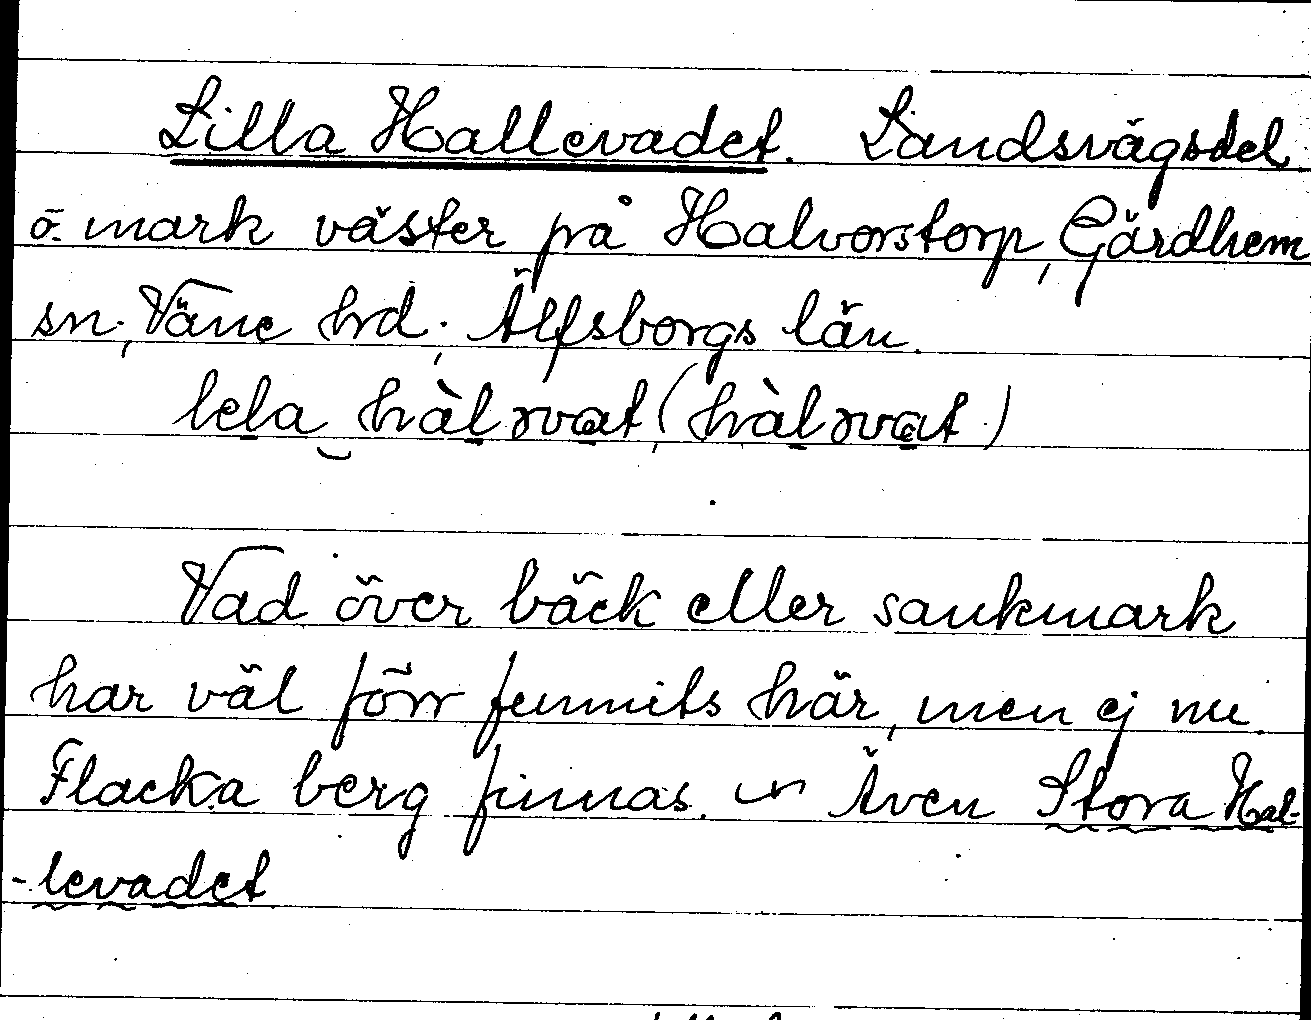 Lilla Hallevadet. Landsvägsdel
o. mark väster på Halvorstorp, Gärdhem
sn, Väne hrd, Älfsborgs län.
Vad över bäck eller sankmark
har väl förr funnits här, men ej nu.
Flacka berg finnas. Även Stora Hal-
-levadet